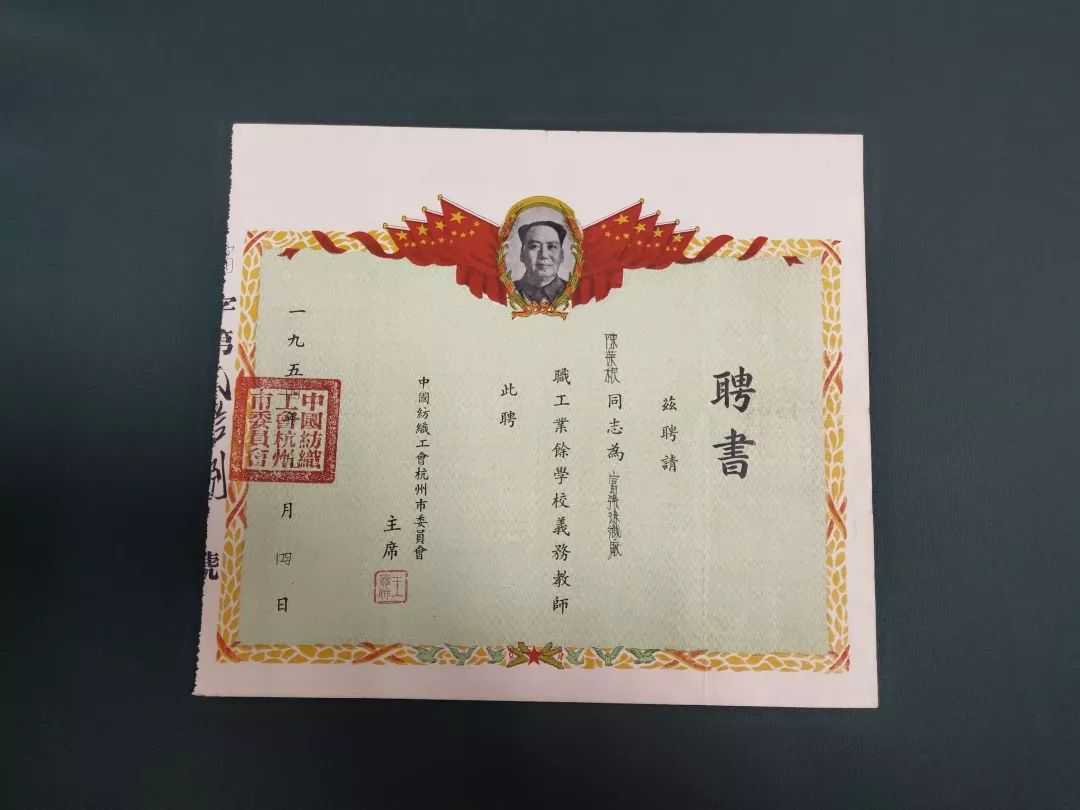 聘書
茲聘請
陳榮根同志為
職工業餘學校義務教師
此聘
中國紡織工會杭州市委員會
主席
一九五 年 月四日
中國紡織
工會杭州
市委員會
字第 號